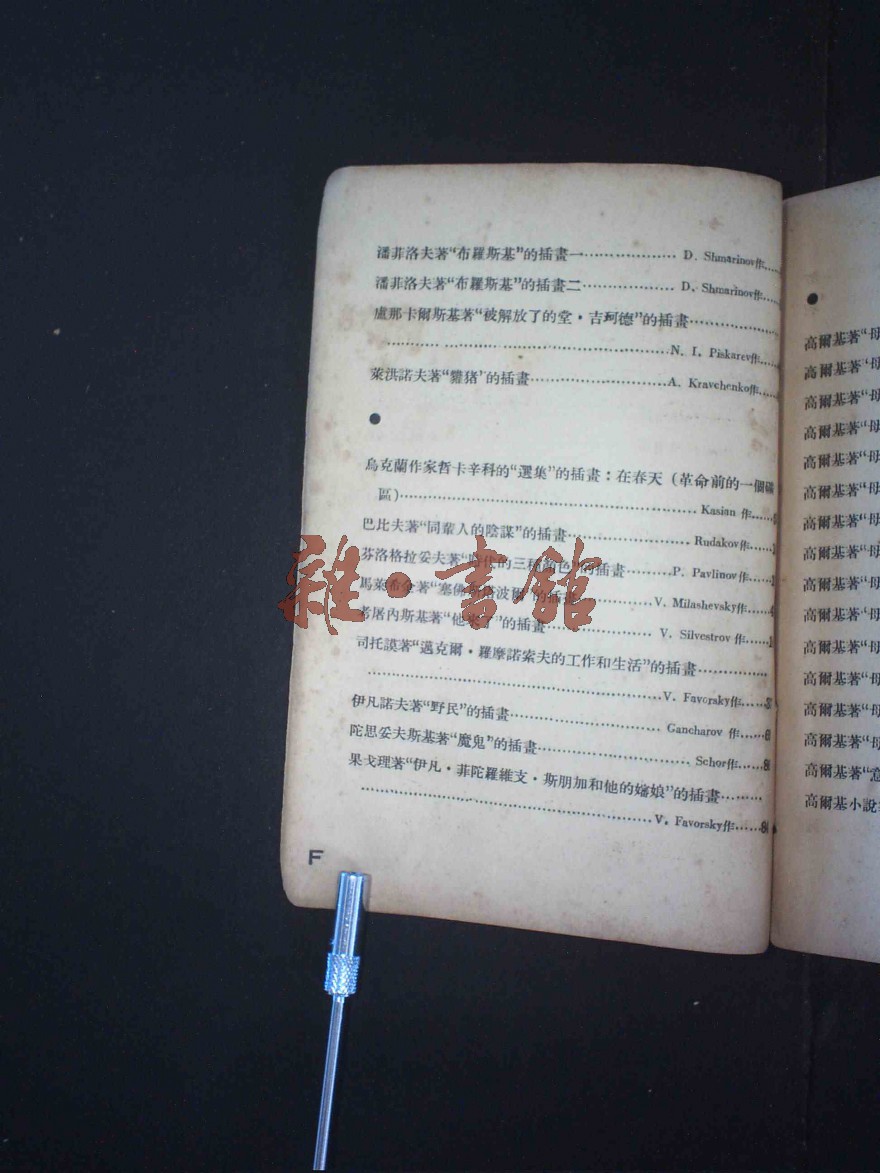 潘菲洛夫著“布羅斯基”的插畫一………………… D. Shmarinov作……
潘菲洛夫著“布羅斯基”的插畫二………………… D. Shmarinov作……
盧那卡爾斯基著“被解放了的堂・吉珂德”的插畫………………
……………………………………………………N. I. Piskarev作……
萊洪諾夫著“豬”的插畫…………………………A. Kravchenko作……
●
烏克蘭作家哲卡辛科的“選集”的插畫：在春天（革命前的一個
區）…………………………………………………… Kasian 作……
巴比夫著“同輩人的陰謀”的插畫……………………… Rudakov作……
芬洛格拉妥夫著“時代的三種角色”的插畫………P. Pavlinov作……
馬萊希金著“塞佛斯塔波爾”的插畫……………V. Milashevsky作……
考屠內斯基著“他來了”的插畫…………………… V. Silvestrov 作……
司托謨著“邁克爾・羅摩諾索夫的工作和生活”的插畫……………
……………………………………………………V. Favorsky作……
伊凡諾夫著“野民”的插畫…………………………… Gancharov 作……
陀思妥夫斯基著“魔鬼”的插畫…………………………… Schor作……
果戈理著“伊凡・菲陀羅維支・斯朋加和他的嬸娘”的插畫………
……………………………………………………V. Favorsky作……
F
●
高爾基著“母
高爾基著“母
高爾基著“母
高爾基著“母
高爾基著“母
高爾基著“母
高爾基著“母
高爾基著“母
高爾基著“母
高爾基著“母
高爾基著“母
高爾基著“母
高爾基著“母
高爾基著“母
高爾基著“意
高爾基小說
雜・書館